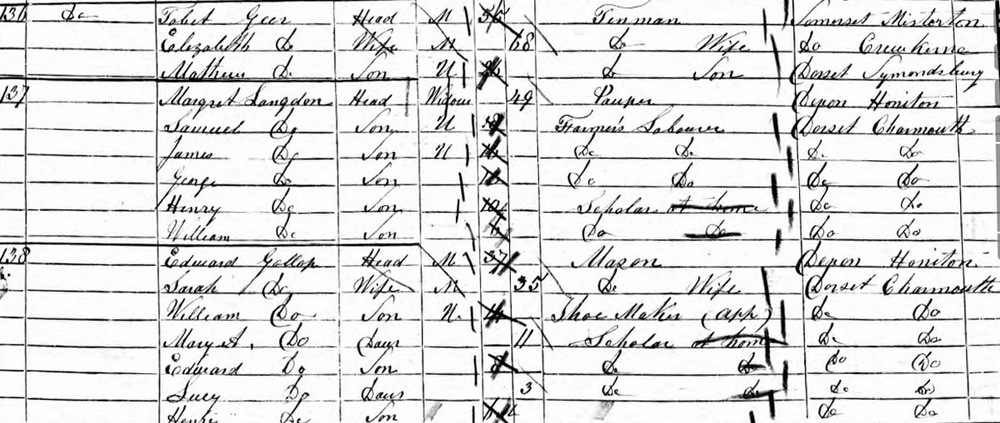 136 Do Tobet Geer Head M 55 Tinman Somerset Mistorton
Elizabeth Do Wife M 68 Do Wife Do Crewkerne
Mathew Do Son U Do Son Dorset Symondsbury
137 Margret Langdon Head Widow 49 Pauper Devon Honiton
Samuel Do Son U Farmer's Labourer Dorset Charmouth
James Do Son U Do Do Do Do
George Do Son Do Do Do Do
Henry Do Son 10 Scholar at home Do Do
William Do Son Do Do Do Do
138 Edward Gollop Head M 37 Mason Devon Honiton
Sarah Do Wife M 35 Do Wife Dorset Charmouth
William Do Son U Shoe Maker (app) Do Do
Mary A. Do Daur 11 Scholar at home Do Do
Edward Do Son Do Do Do Do
Lucy Do Daur 3 Do Do Do Do
Henry Do Son Do Do